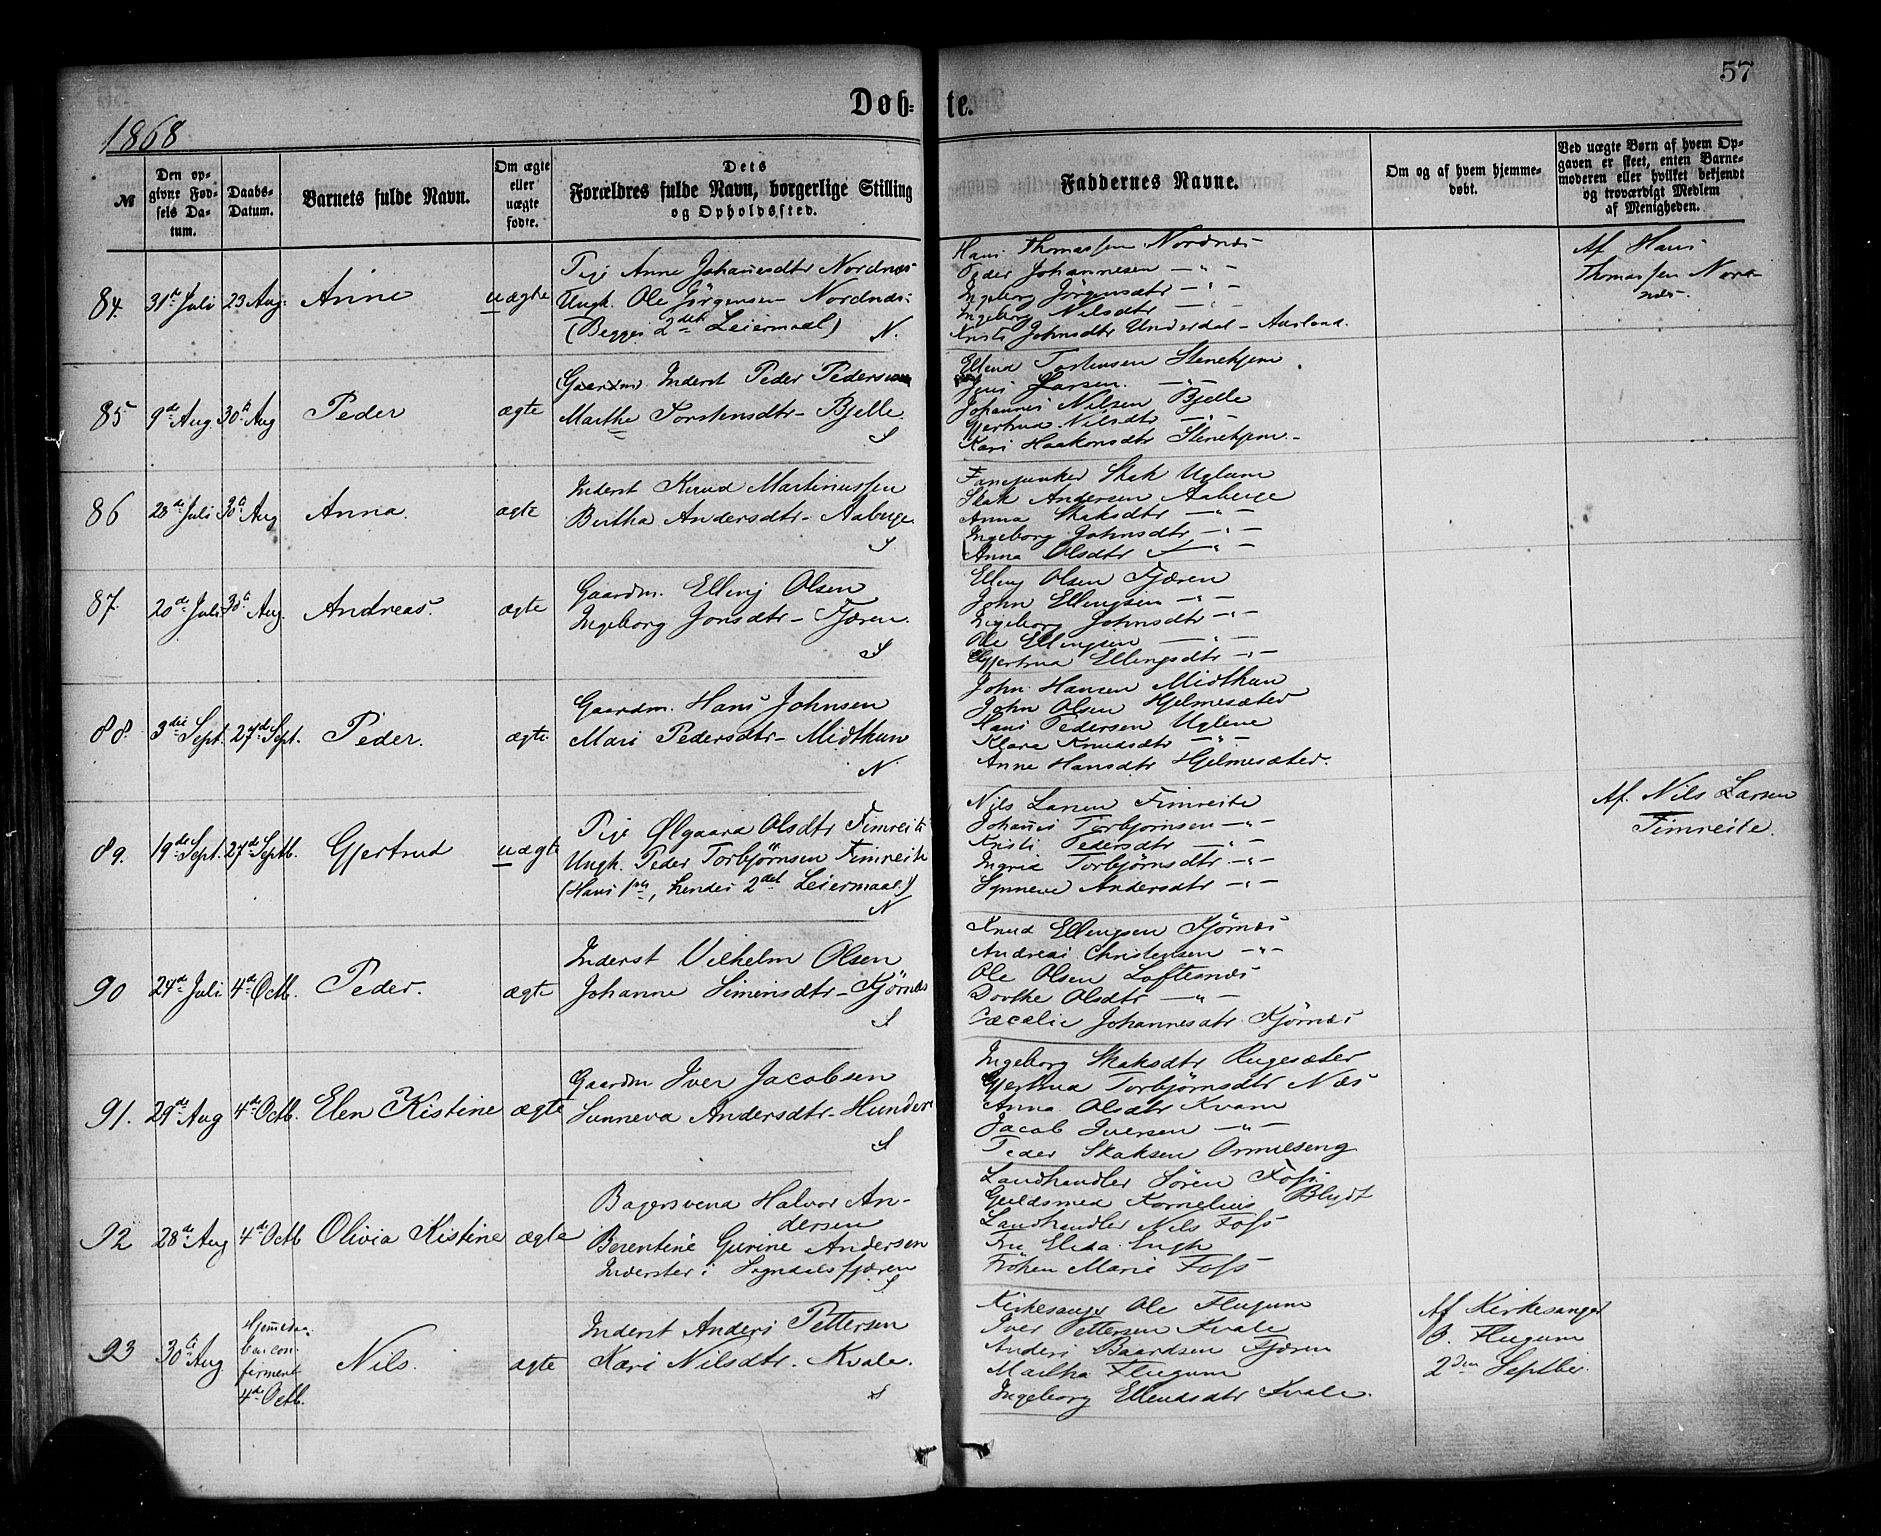 57
Døb-te.
1868
№
Den op-
givne Fød-
sels Da-
tum.
Daabs-
Datum.
Barnets fulde Navn.
Om ægte
eller
uægte
fødte.
Dets
Forældres fulde Navn, borgerlige Stilling
og Opholdssted.
Faddernes Navne.
Om og af hvem hjemme-
døbt.
Ved uægte Børn af hvem Op-
gaven er skeet, enten Barne-
moderen eller hvilket bekjendt
og troværdigt Medlem
af Menigheden.
84. 31te Juli 23 Aug: Anne uægte
Pige Anne Johanesdtr Nordnæs
Ungk. Ole Jörgensen Nordnæs:
(Begges 2det Leiermaal) N.
Hans Thomassen Nordnæs
Peder Johannesen —"—
Ingeborg Jörgensdtr —"—
Ingeborg Nilsdtr —"—
Kristi Johnsdtr Underdal - Aurland.
Af Hans
Thomassen Nord-
næs.
85 9de Aug 30te Aug Peder ægte
Inderst Peder Pedersen
Marthe Torstensdtr - Bjelle
S
Ellend Torstensen Stenehjem
Jens Larsen. —"—
Johannes Nilsen Bjelle
Gjertrud Nilsdtr —"—
Kari Haakonsdtr Stenehjem
86 28de Juli 30te Aug Anna. ægte
Inderst Knud Martinussen
Bertha Andersdtr - Aaberge
S
Fanejunker Skak Uglum
Skak Andersen Aaberge
Anna Skaksdtr —"—
Ingeborg Johnsdtr —"—
Anna Olsdtr —"—
87. 20de Juli 30te Aug. Andreas. ægte
Gaardm. Elling Olsen
Ingeborg Jonsdtr - Fjæren.
S
Elling Olsen Fjæren
John Ellingsen —"—
Ingeborg Johnsdtr —"—
Ole Ellingsen —"—
Gjertrud Ellingsdtr —"—
88. 3die Sept. 27de Sept. Peder. ægte
Gaardm. Hans Johnsen
Mari Pedersdtr - Midthun
N
John Hansen Midthun
John Olsen Hjelmesæter
Hans Pedersen Uglene
Klare Knudsdtr —"—
Anne Hansdtr Hjelmesæter.
89. 19de Sept. 27de Septb. Gjertrud uægte
Pige Ølgaard Olsdtr Fimreite
Ungk. Peder Torbjørnsen Fimreite
(Hans 1ste, hendes 2det Leiermaal)
N
Nils Larsen Fimreite
Johanes Torbjornsen —"—
Kristi Pedersdtr —"—
Ingrid Torbjørnsdtr —"—
Synneve Andersdtr —"—
Af. Nils Larsen
Fimreite.
90 24de Juli 4de Octb. Peder. ægte
Inderst Vilhelm Olsen
Johanne Simensdtr - Kjörnæs
S
Knud Ellingsen Kjörnæs
Andreas Christensen —"—
Ole Olsen Loftesnæs
Dorthe Olsdtr —"—
Cæcelie Johannesdtr Kjörnæs
91. 29de Aug 4de Octb. Elen Kistine ægte
Gaardm Iver Jacobsen
Sunneva Andersdtr - Hundere
S
Ingeborg Skaksdtr Rugesæter
Gjertrud Torbjørnsdtr Næs
Anna Olsdtr Kvam
Jacob Iversen —"—
Peder Skaksen Ormelseng
92 28de Aug 4de Octb Olivia Kistine ægte
Bagersvend Halvor An-
dersen
Berentine Gurine Andersen
Inderster i Sogndalsfjæren
S
Landhandler Sören Foss
Guldsmed Kornelius Blydt
Landhandler Nils Foss
Fru Elida Engh
Fröken Marie Foss
93 30te Aug
Hjemeda-
ben con-
firmeret
4de Octb.
Nils. ægte
Inderst Anders Pettersen
Kari Nilsdtr. Kvale.
S
Kirkesanger Ole Flugum
Iver Pettersen Kvale
Anders Baardsen Fjæren
Martha Flugum
Ingeborg Ellendsdtr Kvale.
Af Kirkesanger
O. Flugum
2den Septbr